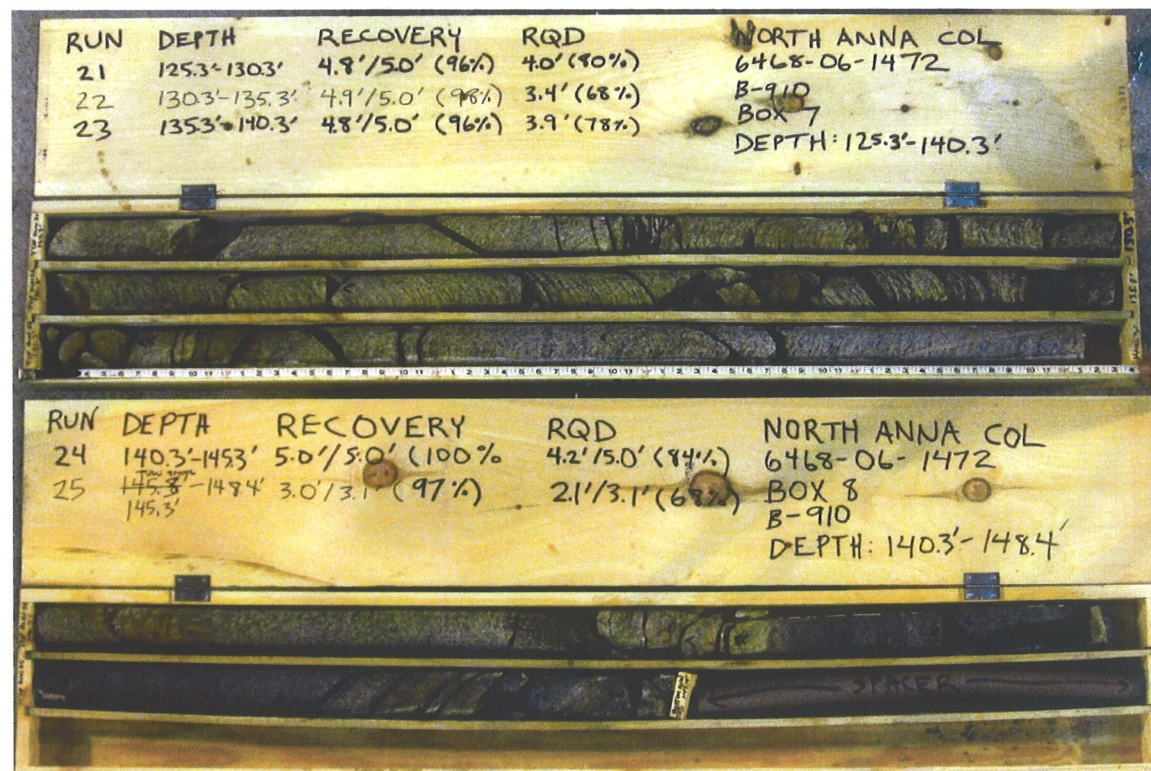 RUN DEPTH RECOVERY RQD
21 125.3'-130.3' 4.8'/5.0' (96%) 4.0' (80%)
22 130.3'-135.3' 4.9'/5.0' (98%) 3.4' (68%)
23 135.3'-140.3' 4.8'/5.0' (96%) 3.9' (78%)
NORTH ANNA COL
6468-06-1472
B-910
BOX 7
DEPTH: 125.3'-140.3'
RUN DEPTH RECOVERY RQD
24 140.3'-145.3' 5.0'/5.0' (100%
25 145.8'-148.4' 3.0'/3.1' (97%) 2.1'/3.1' (68%)
145.3'
4.2'/5.0' (84%)
NORTH ANNA COL
6468-06-1472
BOX 8
B-910
DEPTH: 140.3'-148.4'
SPACER